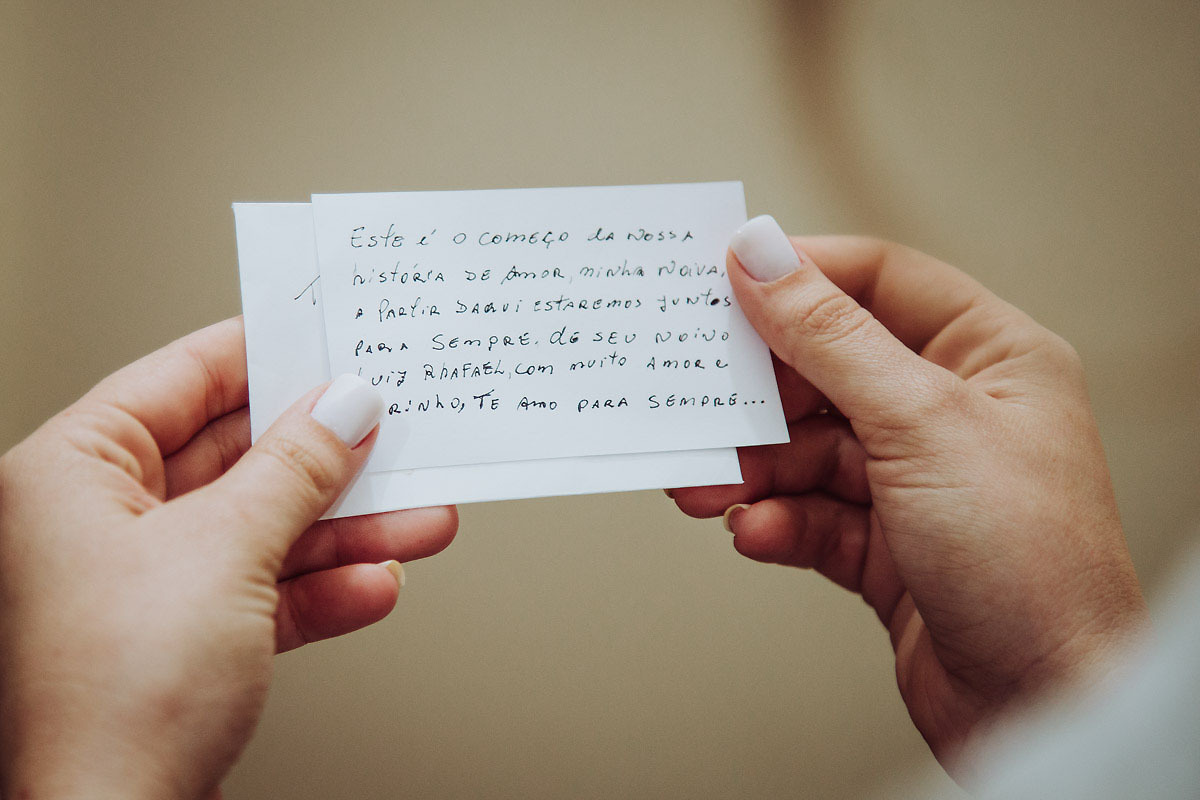 Este é o começo da nossa
história de amor, minha noiva,
a partir daqui estaremos juntos
para sempre. de seu noivo
Luiz Rhafael, com muito amor e
rinho, te amo para sempre...